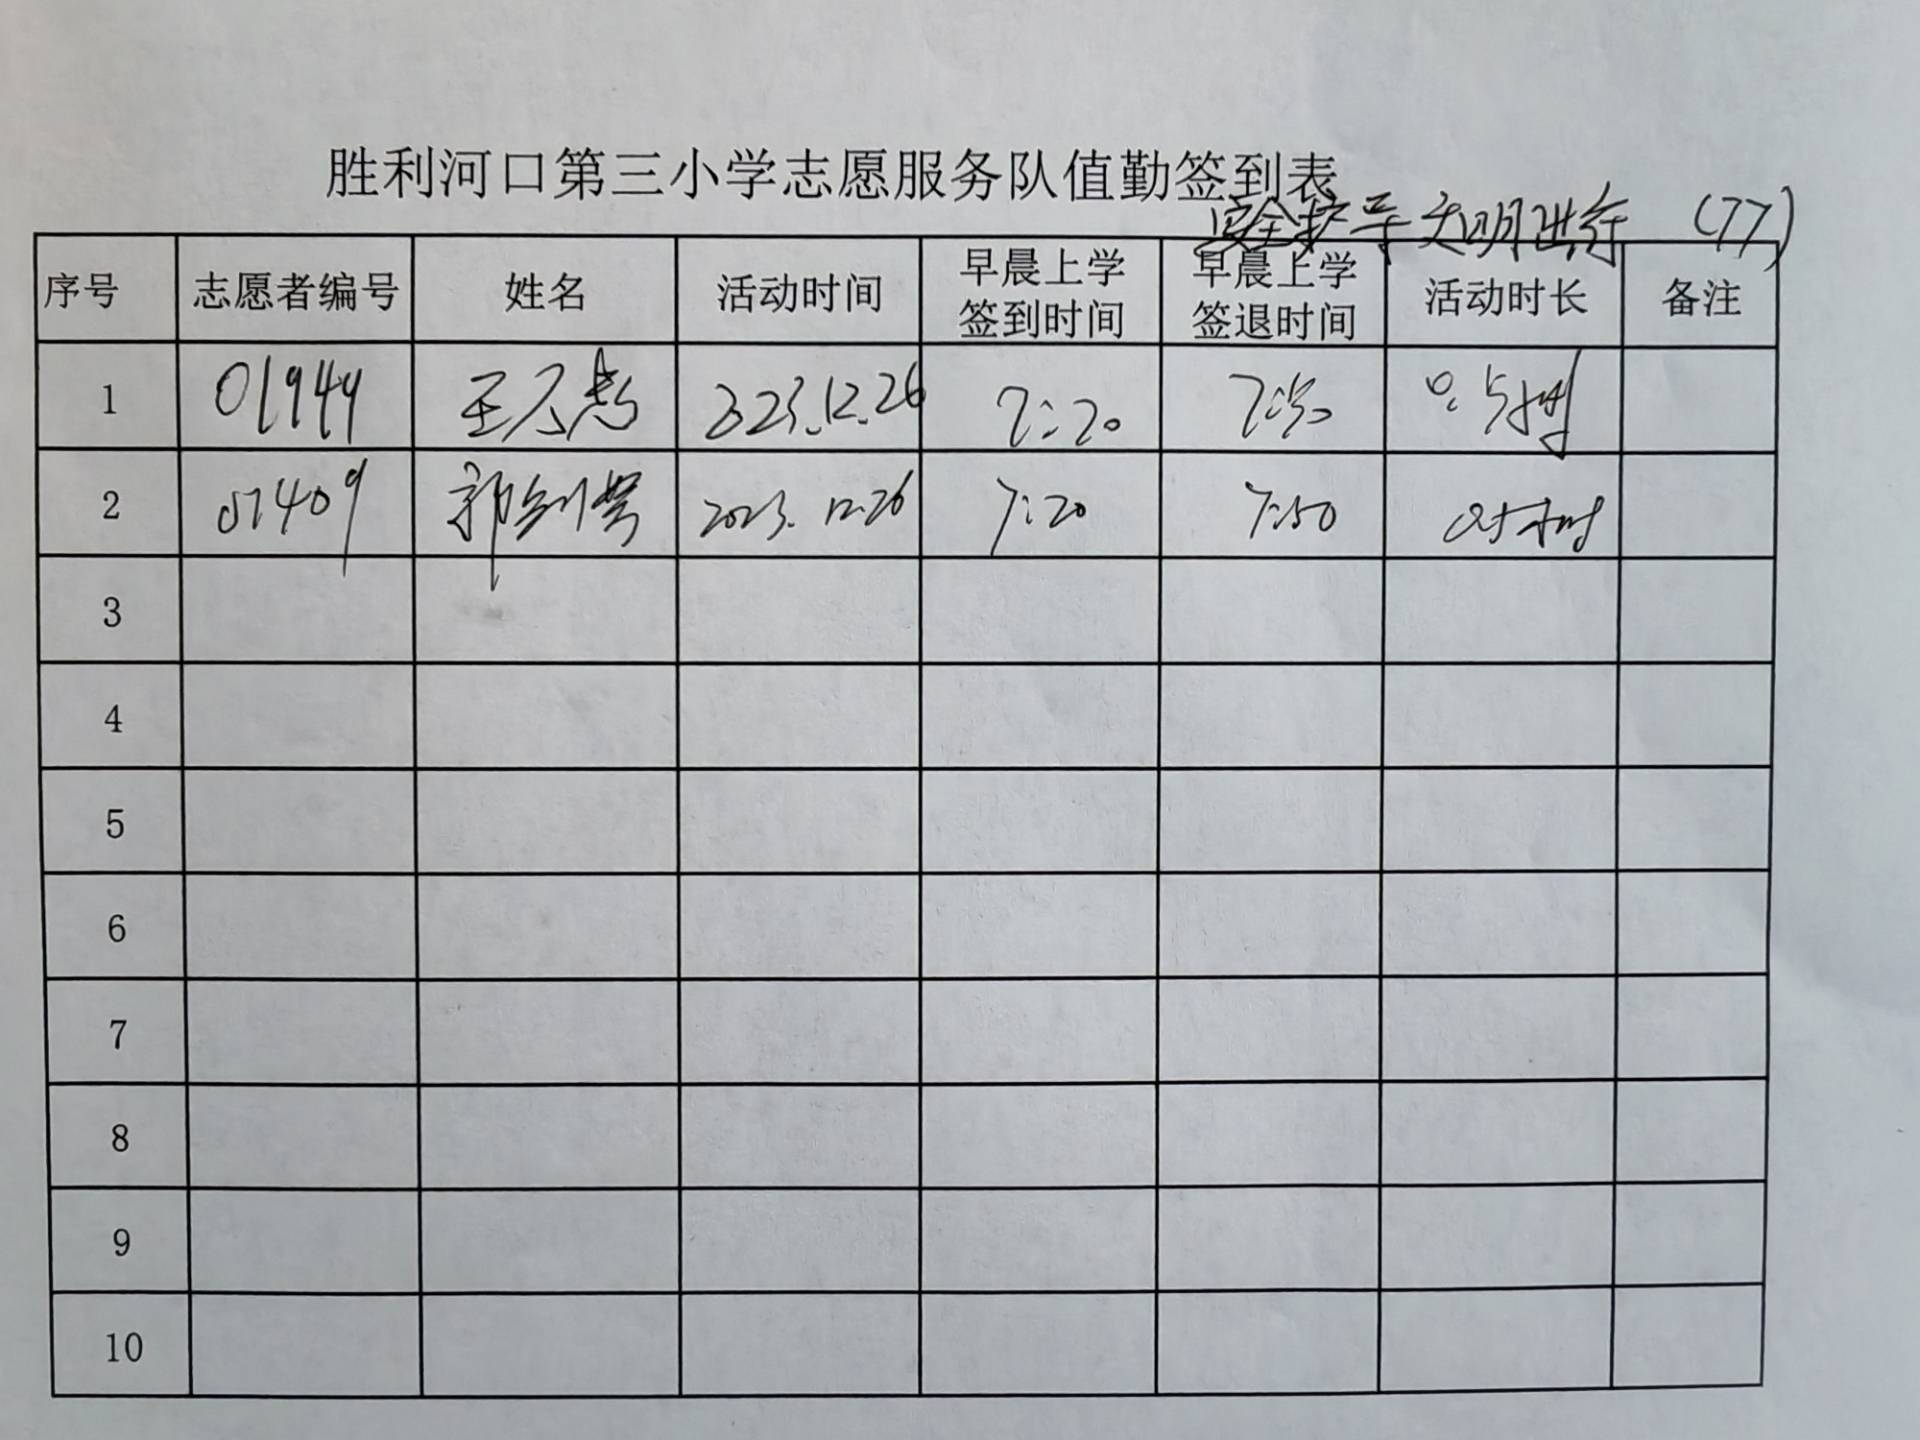 胜利河口第三小学志愿服务队值勤签到表
安全护导 文明出行 (77)
序号 志愿者编号 姓名 活动时间 早晨上学签到时间 早晨上学签退时间 活动时长 备注
1 01944 王 2023.12.26 7:20 7:50 0.5小时
2 01409 郭 2023.12.26 7:20 7:50 0.5小时
3
4
5
6
7
8
9
10